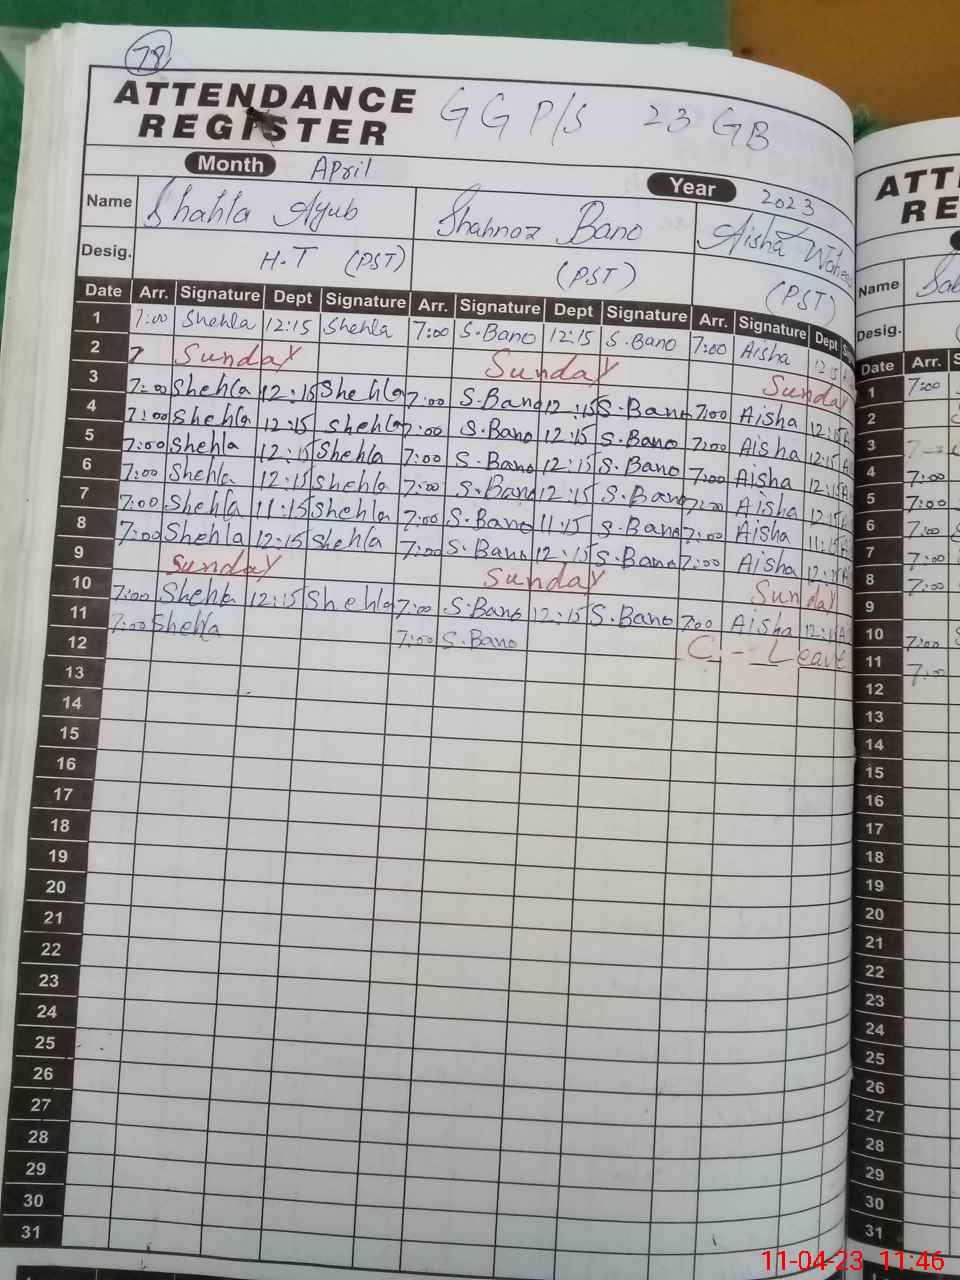 78
ATTENDANCE REGISTER GGP/S 23 GB
Month April Year 2023
Name Shahla Ayub Shahnaz Bano Aisha
Desig. H.T (PST) (PST) (PST)
Date Arr. Signature Dept Signature Arr. Signature Dept Signature Arr. Signature Dept
1 7:00 Shehla 12:15 Shehla 7:00 S.Bano 12:15 S.Bano 7:00 Aisha 12:15
2 Sunday Sunday Sunday
3 7:00 Shehla 12:15 Shehla 7:00 S.Bano 12:15 S.Bano 7:00 Aisha 12:15
4 7:00 Shehla 12:15 Shehla 7:00 S.Bano 12:15 S.Bano 7:00 Aisha 12:15
5 7:00 Shehla 12:15 Shehla 7:00 S.Bano 12:15 S.Bano 7:00 Aisha 12:15
6 7:00 Shehla 12:15 Shehla 7:00 S.Bano 12:15 S.Bano 7:00 Aisha 12:15
7 7:00 Shehla 11:15 Shehla 7:00 S.Bano 11:15 S.Bano 7:00 Aisha 11:15
8 7:00 Shehla 12:15 Shehla 7:00 S.Bano 12:15 S.Bano 7:00 Aisha 12:15
9 Sunday Sunday Sunday
10 7:00 Shehla 12:15 Shehla 7:00 S.Bano 12:15 S.Bano 7:00 Aisha 12:15
11 7:00 Shehla 7:00 S.Bano C - Leave
12
13
14
15
16
17
18
19
20
21
22
23
24
25
26
27
28
29
30
31
ATT
RE
Name
Desig.
Date Arr.
1 7:00
2
3
4 7:00
5 7:00
6 7:00
7 7:00
8 7:00
9
10 7:00
11 7:00
12
13
14
15
16
17
18
19
20
21
22
23
24
25
26
27
28
29
30
31
11-04-23 11:46